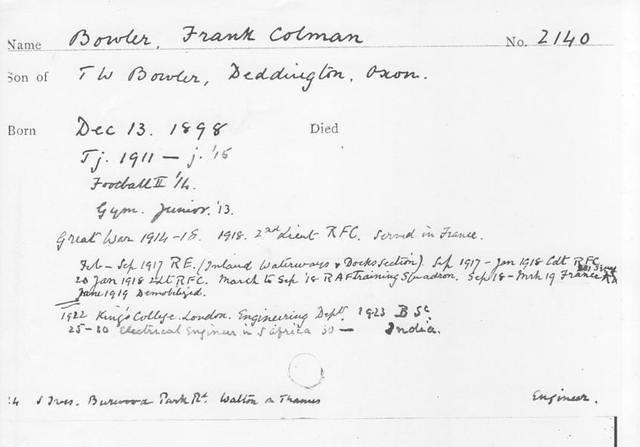 Name Bowler, Frank Colman No. 2140
Son of T W Bowler, Deddington, Oxon.
Born Dec 13. 1898 Died
Tj. 1911 – j. '15
Football II '14.
Gym. Junior. '13.
Great War 1914-18. 1918. 2nd Lieut RFC. Served in France.
Feb – Sep 1917 RE. (Inland Waterways & Docks Section) Sep 1917 – Jan 1918 Cdt RFC
20 Jan 1918 2Lt RFC. March to Sep '18 RAF Training Squadron. Sep 18 – Mrh 19 France
June 1919 Demobilized.
1922 King's College. London. Engineering Dept. 1923 B Sc
25-30 Electrical Engineer in S Africa 30 – India.
S Ives. Burwood Park Rd. Walton on Thames Engineer.